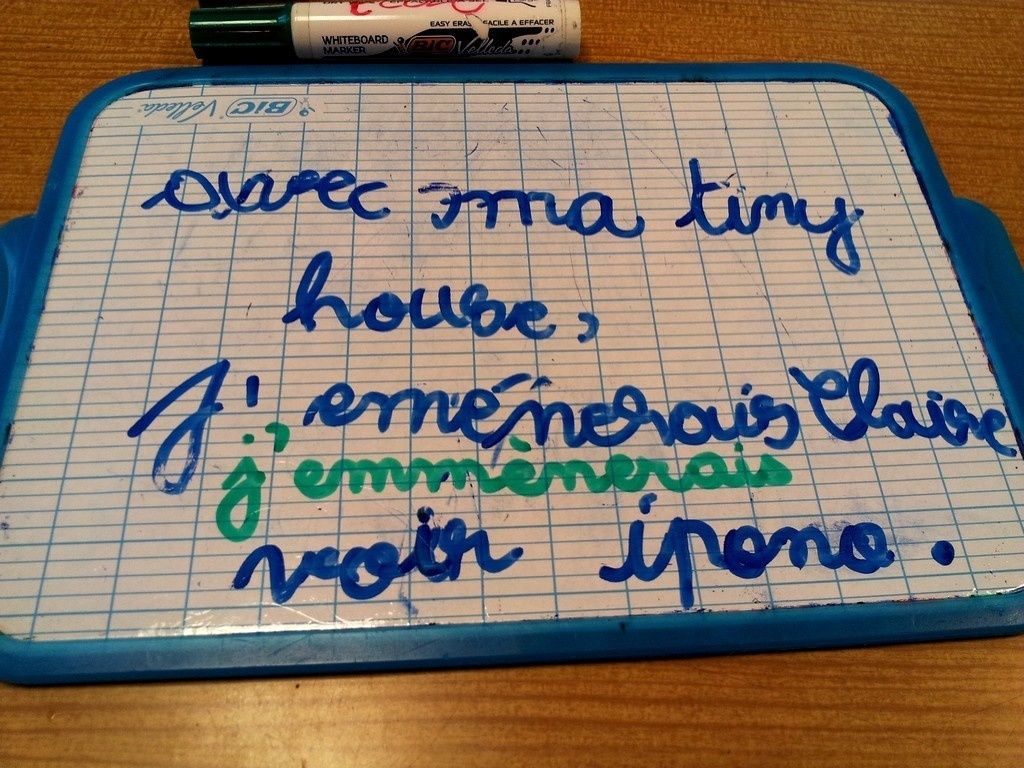 EASY ERASE FACILE A EFFACER
WHITEBOARD
MARKER
BIC Velleda
BIC Velleda
avec ma tiny
house,
J'eménerais Claire
j'emmènerais
voir ipono.